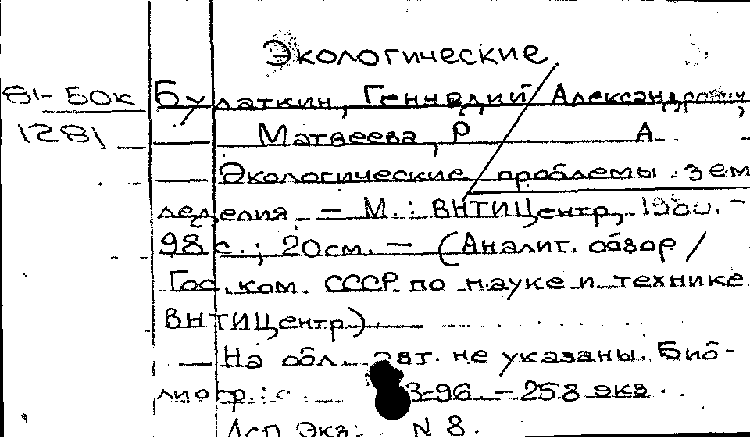 Экологические
81-50к Булаткин, Геннадий Александрович,
1281 Матвеева, Р А.
Экологические проблемы зем
леделия. - М.: ВНТИЦентр, 1980. -
98 с.; 20 см. - (Аналит. обзор /
Гос. ком. СССР по науке и технике.
ВНТИЦентр)
На обл. авт. не указаны. Биб-
лиогр.: с. 3-96. - 258 экз.
Деп Экз: N 8.